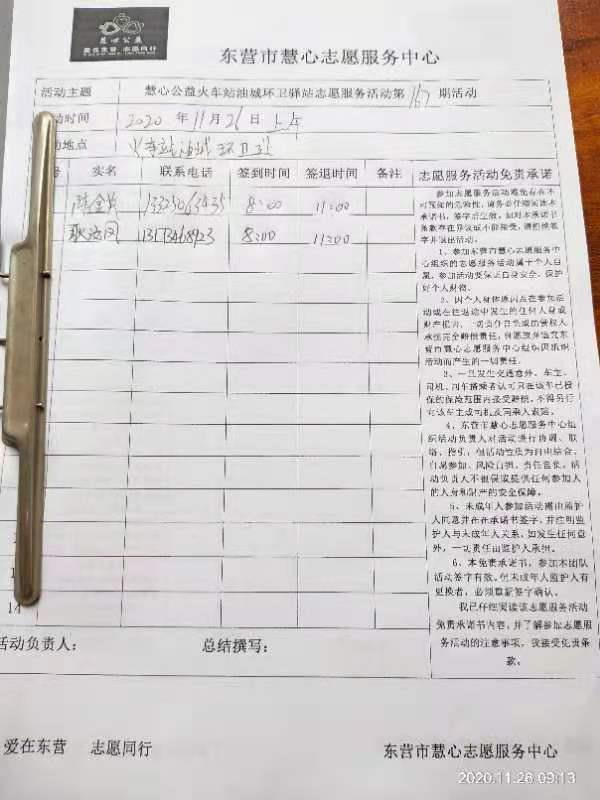 慧心公益
爱在东营 志愿同行
东营市慧心志愿服务中心
活动主题 慧心公益火车站油城环卫驿站志愿服务活动第167期活动
动时间 2020年11月26日上午
动地点 火车站油城环卫驿站
号 实名 联系电话 签到时间 签退时间 备注 志愿服务活动免责承诺
8:00 11:00
8:00 11:00
参加志愿服务活动难免存在不
可预知的危险性，请务必仔细阅读本
承诺书，签字后生效。如对本承诺书
条款存在异议或不能接受，请拒绝签
字并退出活动。
1、参加东营市慧心志愿服务中
心组织的志愿服务活动属于个人自
愿，参加活动要保证自身安全、保护
好个人财物。
2、因个人身体原因及在参加活
动或在往返途中发生的任何人身或
财产损失，一切责任自负或由侵权人
承担完全赔偿责任，
营市慧心志愿服务中心组织因组织
活动而产生的一切责任。
3、一旦发生交通意外，车主、
司机、同车搭乘者认可只在该车已投
保的保险范围内接受赔偿，不得另行
向该车主或司机及同乘人索赔。
4、东营市慧心志愿服务中心组
织活动负责人对活动进行协调、联
络、指引，但活动性质为自由结合、
自愿参加、风险自担、责任自负，活
动负责人不担保或提供任何参加人
的人身和财产的安全保障。
5、未成年人参加活动需由监护
人同意并在承诺书签字，并注明监
护人与未成年人关系。如发生任何意
外，一切责任由监护人承担。
6、本免责承诺书，参加本团队
活动签字有效，但未成年人监护人有
更换者，必须重新签字确认。
我已仔细阅读该志愿服务活动
免责承诺书内容，并了解参加志愿服
务活动的注意事项，我接受免责条
款。
14
活动负责人： 总结撰写：
爱在东营 志愿同行 东营市慧心志愿服务中心
2020.11.26 09:13